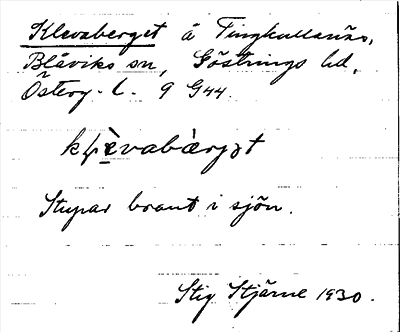 Klevaberget å Tingkullanäs,
Blåviks sn, Göstrings hd,
Österg. l. 9 G44.
kḷèvabàrgət
Stupar brant i sjön.
Stig Stjärne 1930.